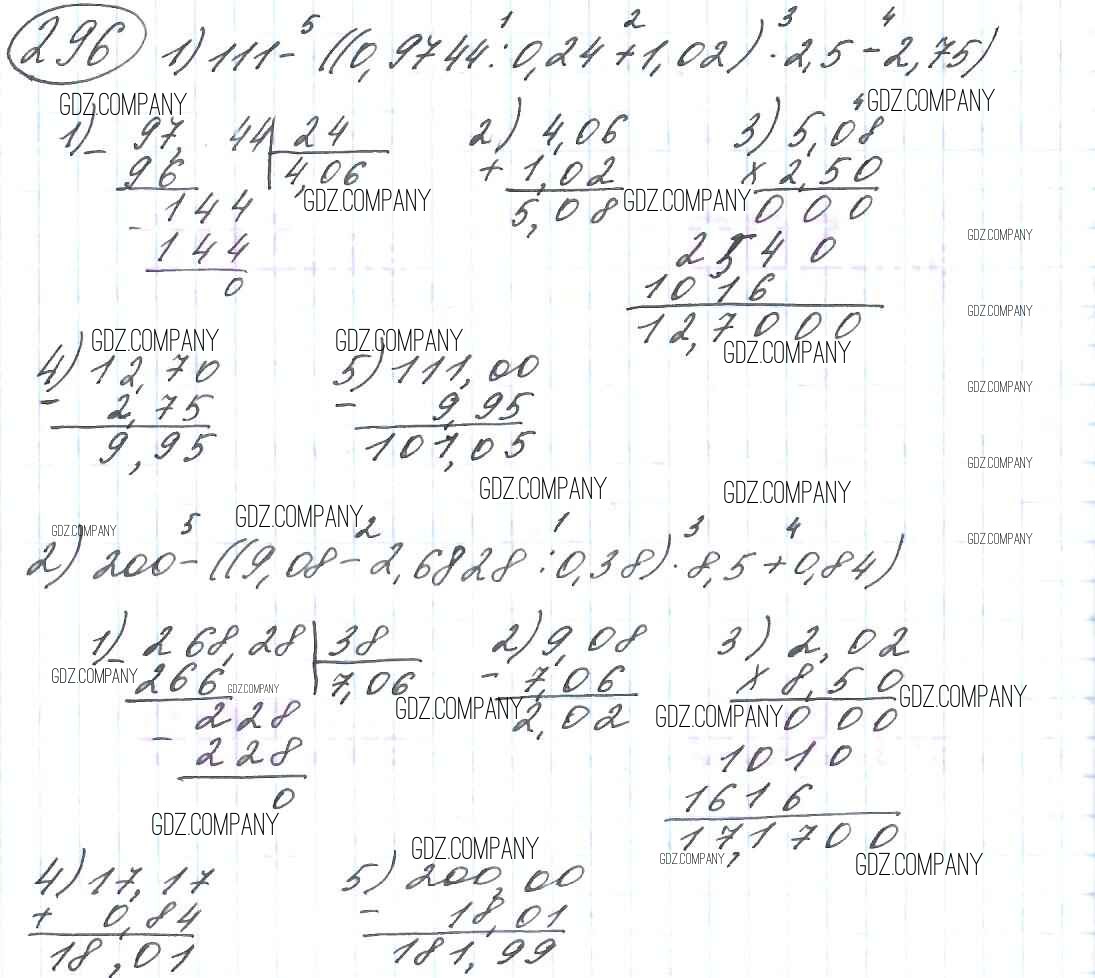 296 1) 111 - ((0,9744 : 0,24 + 1,02) · 2,5 - 2,75)
5 1 2 3 4
GDZ.COMPANY GDZ.COMPANY
1) 97,44 | 24
- 96 | 4,06
144
- 144
0
GDZ.COMPANY
2) 4,06
+ 1,02
5,08
GDZ.COMPANY
4
3) 5,08
× 2,50
000
2540
1016
12,7000
GDZ.COMPANY
GDZ.COMPANY
GDZ.COMPANY
GDZ.COMPANY
GDZ.COMPANY GDZ.COMPANY
4) 12,70
- 2,75
9,95
5) 111,00
- 9,95
101,05
GDZ.COMPANY GDZ.COMPANY GDZ.COMPANY
GDZ.COMPANY GDZ.COMPANY GDZ.COMPANY
5 2 1 3 4
2) 200 - ((9,08 - 2,6828 : 0,38) · 8,5 + 0,84)
1) 268,28 | 38
- 266 | 7,06
228
- 228
0
GDZ.COMPANY GDZ.COMPANY GDZ.COMPANY
2) 9,08
- 7,06
2,02
GDZ.COMPANY
3) 2,02
× 8,50
000
1010
1616
17,1700
GDZ.COMPANY
GDZ.COMPANY GDZ.COMPANY GDZ.COMPANY GDZ.COMPANY
4) 17,17
+ 0,84
18,01
5) 200,00
- 18,01
181,99